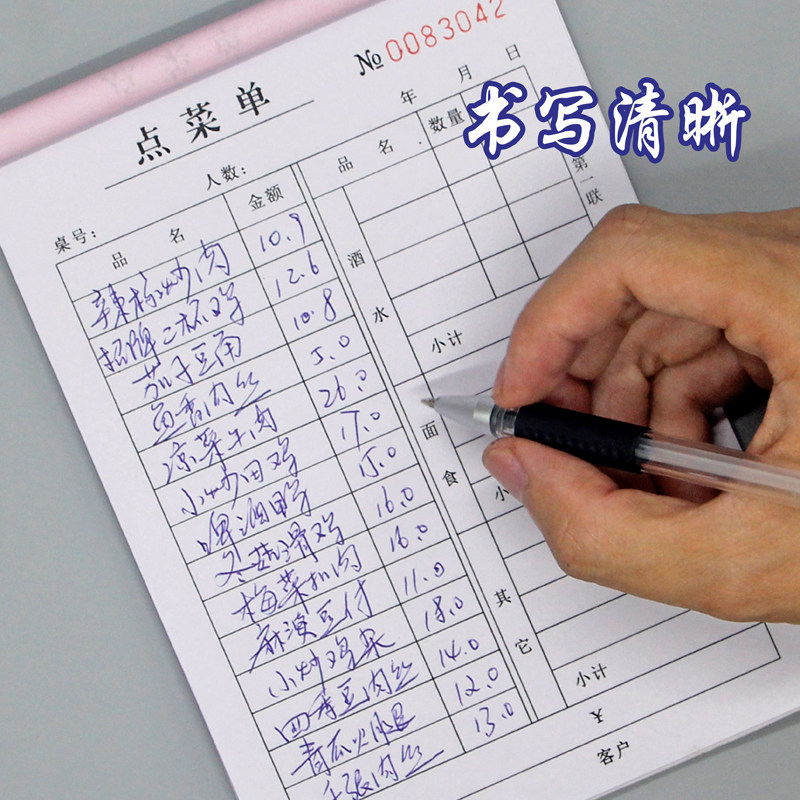 №0083042
书写清晰
点菜单
年 月 日
桌号: 人数:
品 名 金额
辣椒炒肉 10.9
招牌三杯鸡 12.6
茄子豆角 10.8
鱼香肉丝 5.0
凉菜牛肉 26.0
小炒田鸡 17.0
啤酒鸭 15.0
冬菇滑鸡 16.0
梅菜扣肉 16.0
麻辣豆付 11.0
小炒鸡杂 18.0
四季豆肉丝 14.0
青瓜火腿 12.0
肉丝 13.0
品 名 数量
酒水
小计
面食
小
其它
小计
¥
客户
第一联